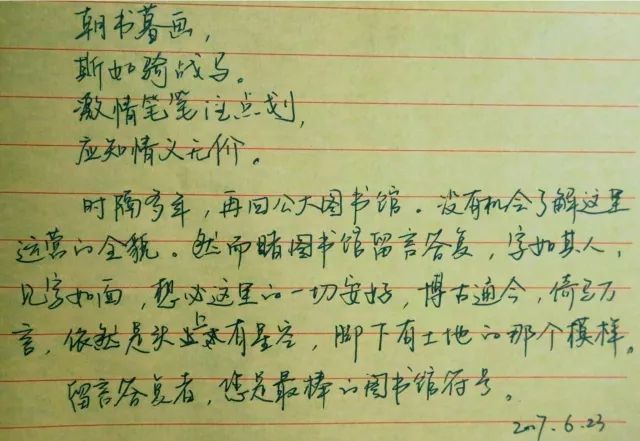 朝书暮画，
斯如骑战马。
激情笔笔注点划，
应知情义无价。
时隔多年，再回公大图书馆。没有机会了解这里
运营的全貌。然而睹图书馆留言答复，字如其人，
见字如面，想必这里的一切安好，博古通今，倚马万
言，依然是头上有星空，脚下有土地的那个模样。
留言答复者，您是最棒的图书馆符号。
2017.6.23